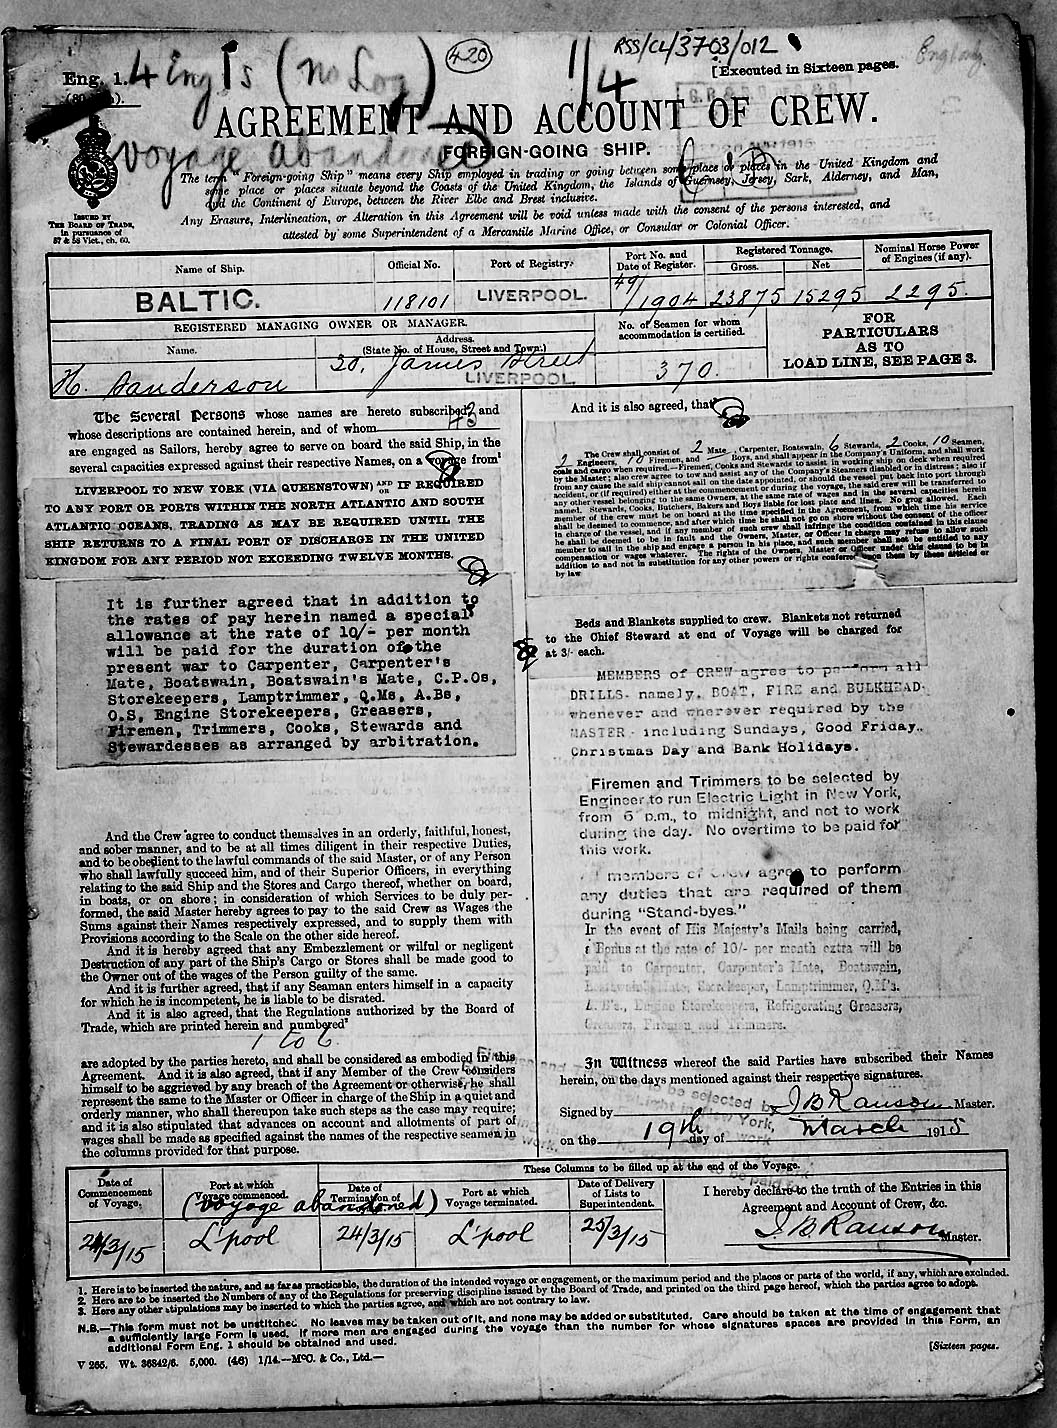 420
RSS/CL/3703/012
Eng. 1.
4 Eng 1s (no Log)
1/4
[Executed in Sixteen pages.
AGREEMENT AND ACCOUNT OF CREW.
voyage abandoned
FOREIGN-GOING SHIP.
ISSUED BY
THE BOARD OF TRADE,
in pursuance of
57 & 58 Vict., ch. 60.
The term "Foreign-going Ship" means every Ship employed in trading or going between some place or places in the United Kingdom and
some place or places situate beyond the Coasts of the United Kingdom, the Islands of Guernsey, Jersey, Sark, Alderney, and Man,
and the Continent of Europe, between the River Elbe and Brest inclusive.
Any Erasure, Interlineation, or Alteration in this Agreement will be void unless made with the consent of the persons interested, and
attested by some Superintendent of a Mercantile Marine Office, or Consular or Colonial Officer.
Name of Ship.
Official No.
Port of Registry.
Port No. and
Date of Register.
Registered Tonnage.
Gross.
Net
Nominal Horse Power
of Engines (if any).
BALTIC.
118101
LIVERPOOL.
49/1904
23875
15295
2295.
REGISTERED MANAGING OWNER OR MANAGER.
Name.
Address.
(State No. of House, Street and Town.)
No. of Seamen for whom
accommodation is certified.
FOR
PARTICULARS
AS TO
LOAD LINE, SEE PAGE 3.
H. Sanderson
30, James Street
LIVERPOOL.
370.
The Several Persons whose names are hereto subscribed, and
whose descriptions are contained herein, and of whom 43
are engaged as Sailors, hereby agree to serve on board the said Ship, in the
several capacities expressed against their respective Names, on a voyage from¹
LIVERPOOL TO NEW YORK (VIA QUEENSTOWN) AND OR IF REQUIRED
TO ANY PORT OR PORTS WITHIN THE NORTH ATLANTIC AND SOUTH
ATLANTIC OCEANS, TRADING AS MAY BE REQUIRED UNTIL THE
SHIP RETURNS TO A FINAL PORT OF DISCHARGE IN THE UNITED
KINGDOM FOR ANY PERIOD NOT EXCEEDING TWELVE MONTHS.
It is further agreed that in addition to
the rates of pay herein named a special
allowance at the rate of 10/- per month
will be paid for the duration of the
present war to Carpenter, Carpenter's
Mate, Boatswain, Boatswain's Mate, C.P.Os,
Storekeepers, Lamptrimmer, Q.Ms, A.Bs,
O.S, Engine Storekeepers, Greasers,
Firemen, Trimmers, Cooks, Stewards and
Stewardesses as arranged by arbitration.
And the Crew agree to conduct themselves in an orderly, faithful, honest,
and sober manner, and to be at all times diligent in their respective Duties,
and to be obedient to the lawful commands of the said Master, or of any Person
who shall lawfully succeed him, and of their Superior Officers, in everything
relating to the said Ship and the Stores and Cargo thereof, whether on board,
in boats, or on shore; in consideration of which Services to be duly per-
formed, the said Master hereby agrees to pay to the said Crew as Wages the
Sums against their Names respectively expressed, and to supply them with
Provisions according to the Scale on the other side hereof.
And it is hereby agreed that any Embezzlement or wilful or negligent
Destruction of any part of the Ship's Cargo or Stores shall be made good to
the Owner out of the wages of the Person guilty of the same.
And it is further agreed, that if any Seaman enters himself in a capacity
for which he is incompetent, he is liable to be disrated.
And it is also agreed, that the Regulations authorized by the Board of
Trade, which are printed herein and numbered²
1 to 6.
are adopted by the parties hereto, and shall be considered as embodied in this
Agreement. And it is also agreed, that if any Member of the Crew considers
himself to be aggrieved by any breach of the Agreement or otherwise, he shall
represent the same to the Master or Officer in charge of the Ship in a quiet and
orderly manner, who shall thereupon take such steps as the case may require;
and it is also stipulated that advances on account and allotments of part of
wages shall be made as specified against the names of the respective seamen in
the columns provided for that purpose.
And it is also agreed, that³
The Crew shall consist of 2 Mate, Carpenter, Boatswain, 6 Stewards, 2 Cooks, 10 Seamen,
2 Engineers, 10 Firemen, and Boys, and shall appear in the Company's Uniform, and shall work
coals and cargo when required.—Firemen, Cooks and Stewards to assist in working ship on deck when required
by the Master; also crew agree to tow and assist any of the Company's Steamers disabled or in distress; also if
from any cause the said ship cannot sail on the date appointed, or should the vessel put back into port through
accident, or (if required) either at the commencement or during the voyage, the said crew will be transferred to
any other vessel belonging to the same Owners, at the same rate of wages and in the several capacities herein
named. Stewards, Cooks, Butchers, Bakers and Boys liable for lost plate and linen. No grog allowed. Each
member of the crew must be on board at the time specified in the Agreement, from which time his service
shall be deemed to commence, and after which time he shall not go on shore without the consent of the officer
in charge of the vessel, and if any member of such crew shall infringe the condition contained in this clause
he shall be deemed to be in fault and the Owners, Master, or Officer in charge may refuse to allow such
member to sail in the ship and engage a person in his place, and such member shall not be entitled to any
compensation or wages whatever. The rights of the Owners, Master or Officer under this clause to be in
addition to and not in substitution for any other powers or rights conferred upon them by these articled or
by law
Beds and Blankets supplied to crew. Blankets not returned
to the Chief Steward at end of Voyage will be charged for
at 3/- each.
MEMBERS of CREW agree to perform all
DRILLS- namely, BOAT, FIRE and BULKHEAD-
whenever and wherever required by the
MASTER- including Sundays, Good Friday,
Christmas Day and Bank Holidays.
Firemen and Trimmers to be selected by
Engineer to run Electric Light in New York,
from 6 p.m., to midnight, and not to work
during the day. No overtime to be paid for
this work.
members of Crew agree to perform
any duties that are required of them
during "Stand-byes."
In the event of His Majesty's Mails being carried,
a Bonus at the rate of 10/- per month extra will be
paid to Carpenter, Carpenter's Mate, Boatswain,
Boatswain's Mate, Storekeeper, Lamptrimmer, Q.M's.
A.B's., Engine Storekeepers, Refrigerating Greasers,
Greasers, Firemen and Trimmers.
In Witness whereof the said Parties have subscribed their Names
herein, on the days mentioned against their respective signatures.
Signed by J B Ranson Master.
on the 19th day of March 1915
These Columns to be filled up at the end of the Voyage.
Date of
Commencement
of Voyage.
Port at which
Voyage commenced.
Date of
Termination of
Port at which
Voyage terminated.
Date of Delivery
of Lists to
Superintendent.
I hereby declare to the truth of the Entries in this
Agreement and Account of Crew, &c.
(voyage abandoned)
24/3/15
L'pool
24/3/15
L'pool
25/3/15
J. B. Ranson Master.
1. Here is to be inserted the nature, and as far as practicable, the duration of the intended voyage or engagement, or the maximum period and the places or parts of the world, if any, which are excluded.
2. Here are to be inserted the Numbers of any of the Regulations for preserving discipline issued by the Board of Trade, and printed on the third page hereof, which the parties agree to adopt.
3. Here any other stipulations may be inserted to which the parties agree, and which are not contrary to law.
N.B.—This form must not be unstitched. No leaves may be taken out of it, and none may be added or substituted. Care should be taken at the time of engagement that
a sufficiently large Form is used. If more men are engaged during the voyage than the number for whose signatures spaces are provided in this Form, an
additional Form Eng. 1 should be obtained and used.
V 265. Wt. 36842/6. 5,000. (46) 1/14.—McC. & Co., Ltd.—
[Sixteen pages.